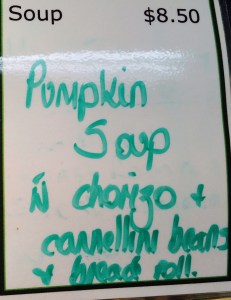 Soup $8.50
Pumpkin
Soup
w chorizo +
cannellini beans
+ bread roll.